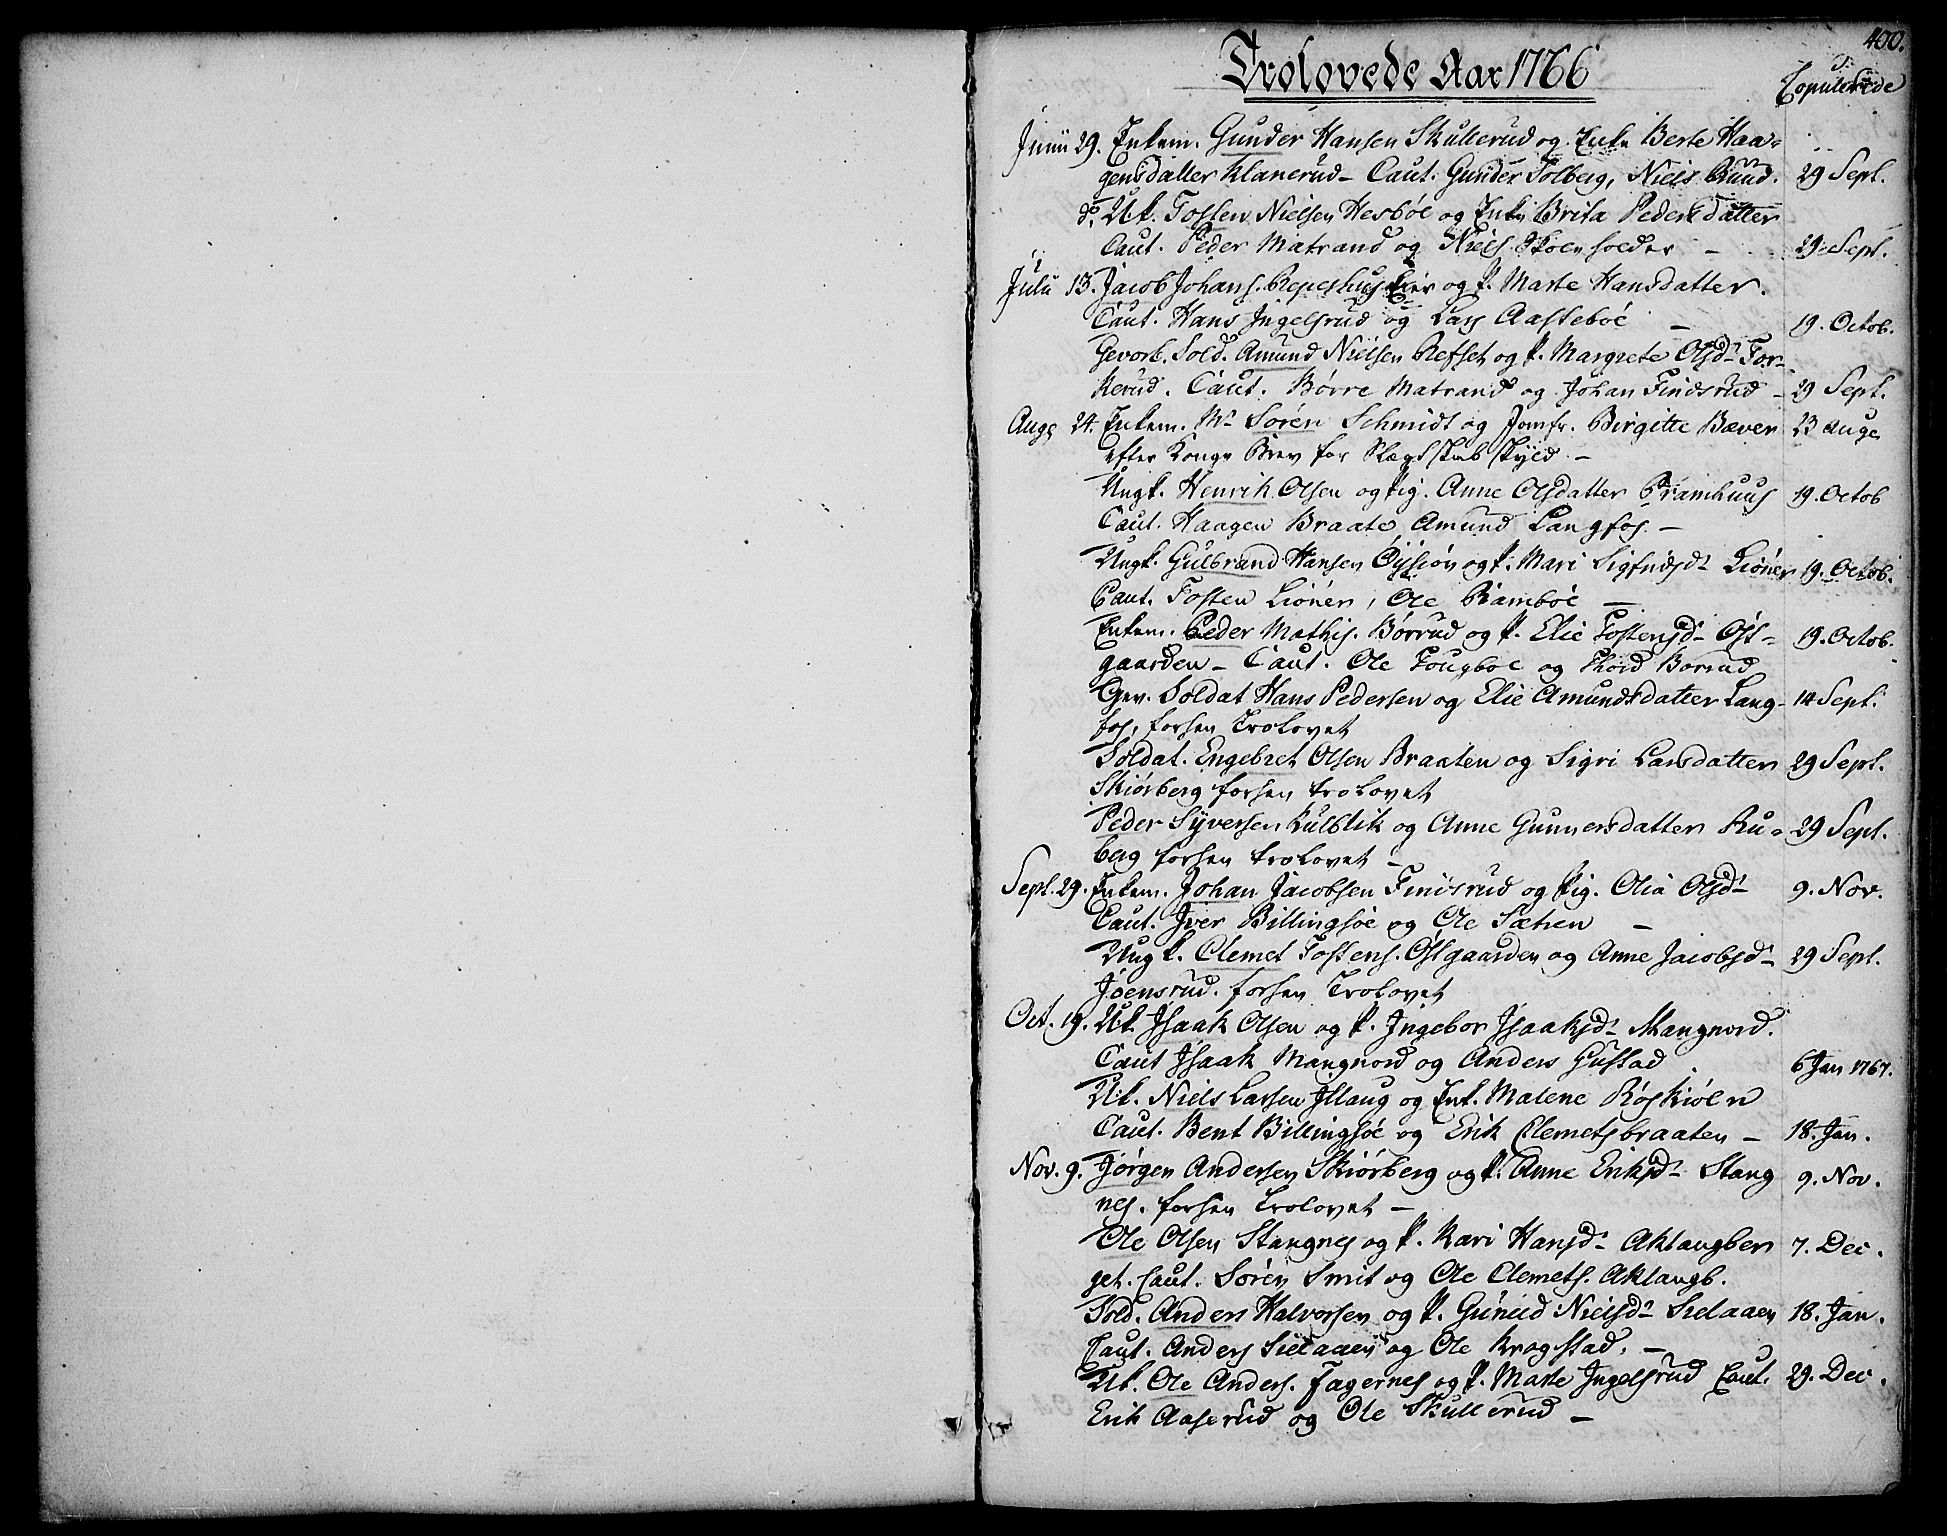 400.
Trolovede Aar 1766
Copulerede
Junii 29. Enkem. Gunder Hansen Skullerud og Enke Berte Haa-
gensdatter Klanerud - Caut. Gunder Tolberg, Niels Ruud. 29 Sept.
do. U.k. Tosten Nielsen Hesbøl og Enke Brita Pedersdatter
Caut. Peder Matrand og Niels - 29 Sept.
Julii 13. Jacob Johans. og P. Marte Hansdatter.
Caut. Hans Ingelsrud og Lars Aasseboe - 19. Octob.
Gevorb. Sold. Amund Nielsen Refset og P. Margrete Olsdr For-
kerud. Caut. Børre Matrand og Johan Findsrud - 29 Sept.
Aug. 24. Enkem. Mr Sören Schmidt og Jomfr. Birgitte Bæver 23 Aug.
efter Konge Brev for Slægtskab skyld -
Ungk. Henrik Olsen og Pig. Anne Olsdatter Pramhuus 19. Octob
Caut. Haagen Braate Amund Langfos -
Ungk. Gulbrand Hansen Øyssiøn og P. Mari Sigfridsdr Liöner 19. Octob.
Caut. Tosten Liöner, Ole Ramboe -
Enkem. Peder Mathis. Børrud og P. Elie Tostensdr Ost- 19. Octob.
gaarden - Caut. Ole Tougboe og Thord Borrud
Gev. Soldat Hans Pedersen og Elie Amundsdatter Lang- 14 Sept.
fos, forhen Trolovet
Soldat. Engebret Olsen Braaten og Sigri Larsdatter 29 Sept.
Skiörberg forhen trolovet
Peder Syversen Kulblik og Anne Gunnersdatter Ru- 29 Sept.
berg forhen trolovet -
Sept. 29. Enkem. Johan Jacobsen Findsrud og Pig. Olia Olsdr 9. Nov.
Caut. Iver Billingsöe og Ole Sætren -
Ungk. Clemet Tostens. Ostgaarden og Anne Jacobsdr 29 Sept.
Joensrud. forhen Trolovet
Oct. 19. U.k. Isaak Olsen og P. Ingebor Isaksdr Mangnord.
Caut Isaak Mangnord og Anders Gustad. 6 Jan 1767.
U.k. Niels Larsen Illaug og Enk. Malene Röskiölen
Caut. Bent Billingsöe og Erik Clemetsbraaten - 18. Jan.
Nov. 9. Jörgen Andersen Skiörberg og P. Anne Eriksdr Stang 9. Nov.
nes. forhen Trolovet -
Ole Olsen Stangnes og P. Kari Hansdr Aklangber 7. Dec.
get. Caut. Sören Smit og Ole Clemets. Aklangb.
Sold. Anders Halvorsen og P. Gunild Nielsdr Sielaaen 18. Jan.
Caut. Anders Sielaaen og Ole Krogstad. -
U.k. Ole Anders. Fagernes og P. Marte Ingelsrud Caut. 29. Dec.
Erik Aaserud og Ole Skullerud -